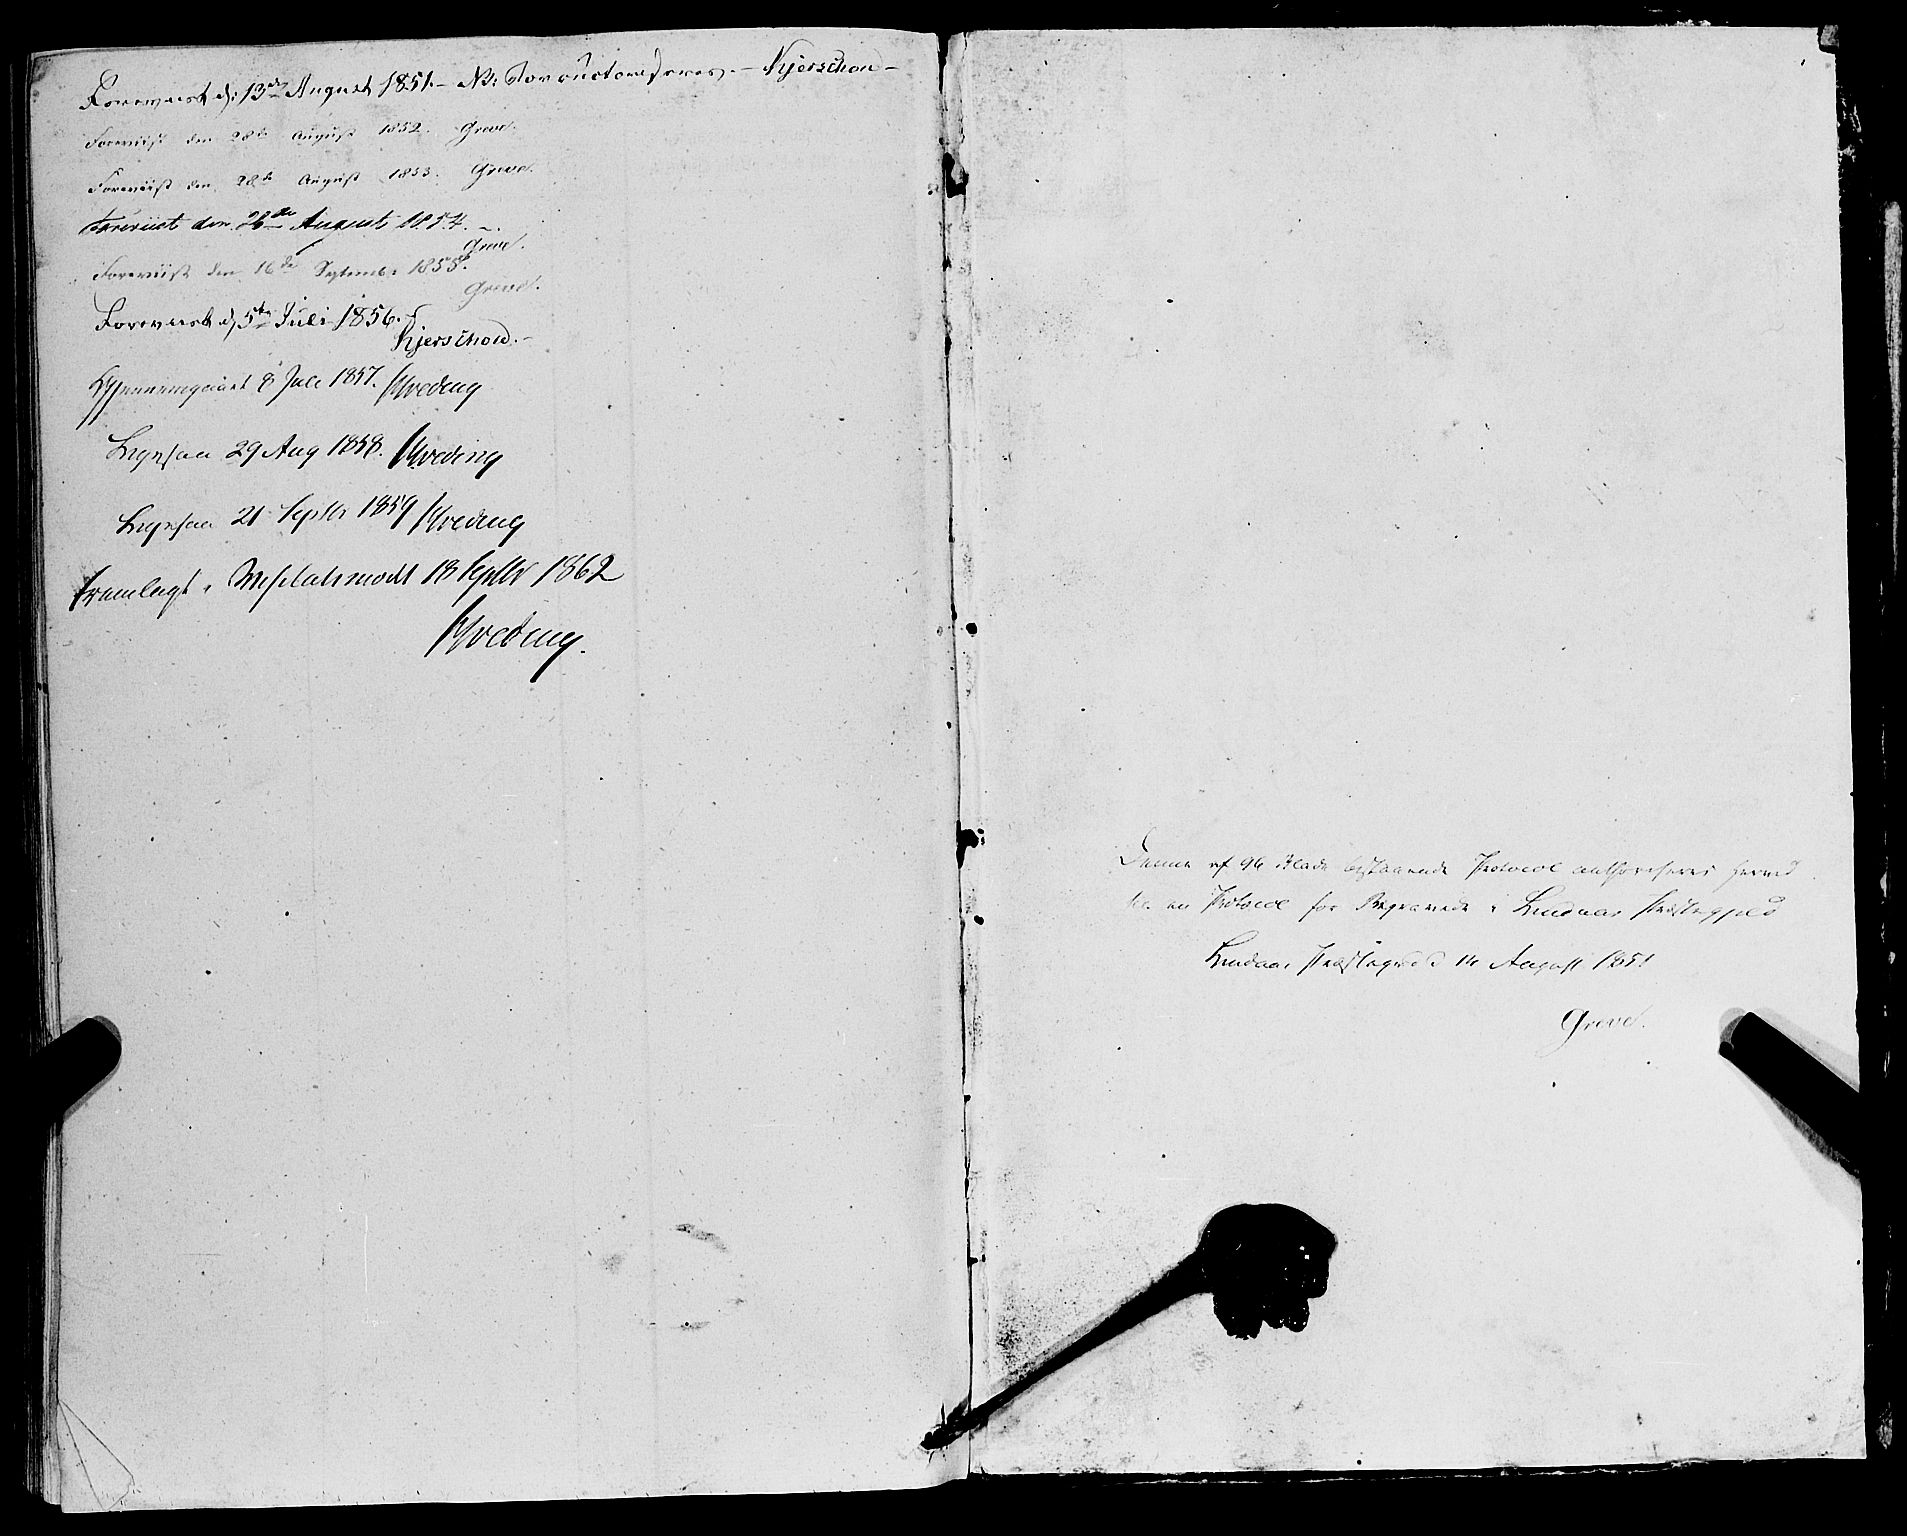 Foreviist d: 13de August 1851. – NB: Foranstaaende – Kjerschow –
Foreviist den 28de August 1852. Greve.
Foreviist den 28de August 1853. Greve.
Foreviist den 26de August 1854. –
Greve.
Foreviist den 16de Septembr 1855.
Greve.
Foreviist d 5te Juli 1856.
Kjerschow. –
Gjennemgaaet 8 Juli 1857. Kveding
Ligesaa 29 Aug 1858. Kveding
Ligesaa 21 Septbr 1859 Kveding
Fremlagt i Visitatsmødet 18 Septbr 1862
Kveding.
Denne af 96 Blade bestaaende Protocol authoriseres herved
til en Protocol for Begravede i Lindaas Præstegjeld
Lindaas Præstegaard 14 August 1851
Greve.